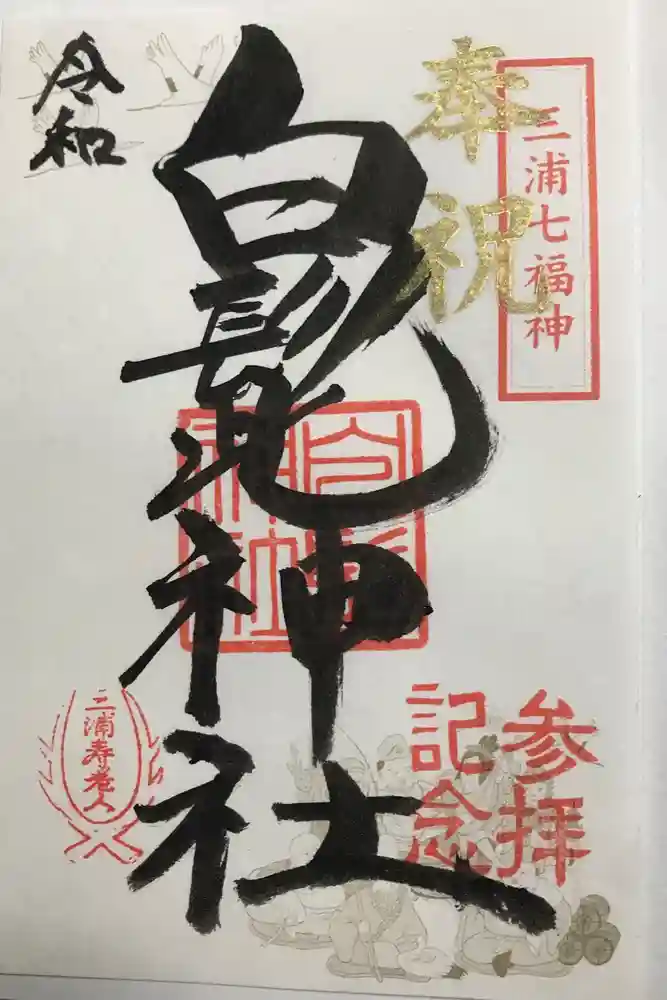 奉祝
三浦七福神
令和
白髭神社
白髭神社
参拝
記念
三浦寿老人